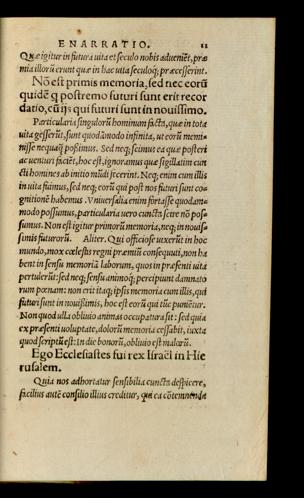 ENARRATIO. 11
Quæ igitur in futura uita et seculo nobis adueniẽt, præ
mia illorũ erunt quæ in hac uita seculoq; præcesserint.
Nõ est primis memoria, sed nec eorũ
quidẽ q̃ postremo futuri sunt erit recor
datio, cũ ijs qui futuri sunt in nouissimo.
Particularia singulorũ hominum facta, quæ in tota
uita gesserũt, sunt quodãmodo infinita, ut eorũ memi-
nisse nequaq̃ possimus. Sed neq; scimus ea quæ posteri
ac uenturi faciẽt, hoc est, ignoramus quæ sigillatim cun
cti homines ab initio mũdi fecerint. Neq; enim cum illis
in uita fuimus, sed neq; eorũ qui post nos futuri sunt co-
gnitionẽ habemus. Vniuersalia enim fortasse quodam-
modo possumus, particularia uero cuncta scire nõ pos-
sumus. Non est igitur primorũ memoria, neq; in nouis-
simis futurorũ. Aliter. Qui officiose uixerũt in hoc
mundo, mox cœlestis regni præmiũ consequuti, non ha
bent in sensu memoriã laborum, quos in præsenti uita
pertulerũt: sed neq; sensu animoq; percipiunt damnato
rum pœnam: non erit itaq; ipsis memoria cum illis, qui
futuri sunt in nouissimis, hoc est eorũ qui tũc puniẽtur.
Non quod ulla obliuio animas occupatura sit: sed quia
ex præsenti uoluptate, dolorũ memoria cessabit, iuxta
quod scriptũ est: In die bonorũ, obliuio est malorũ.
Ego Ecclesiastes fui rex Israël in Hie
rusalem.
Quia nos adhortatur sensibilia cuncta despicere,
facilius autẽ consilio illius creditur, qui ea cõtemnenda